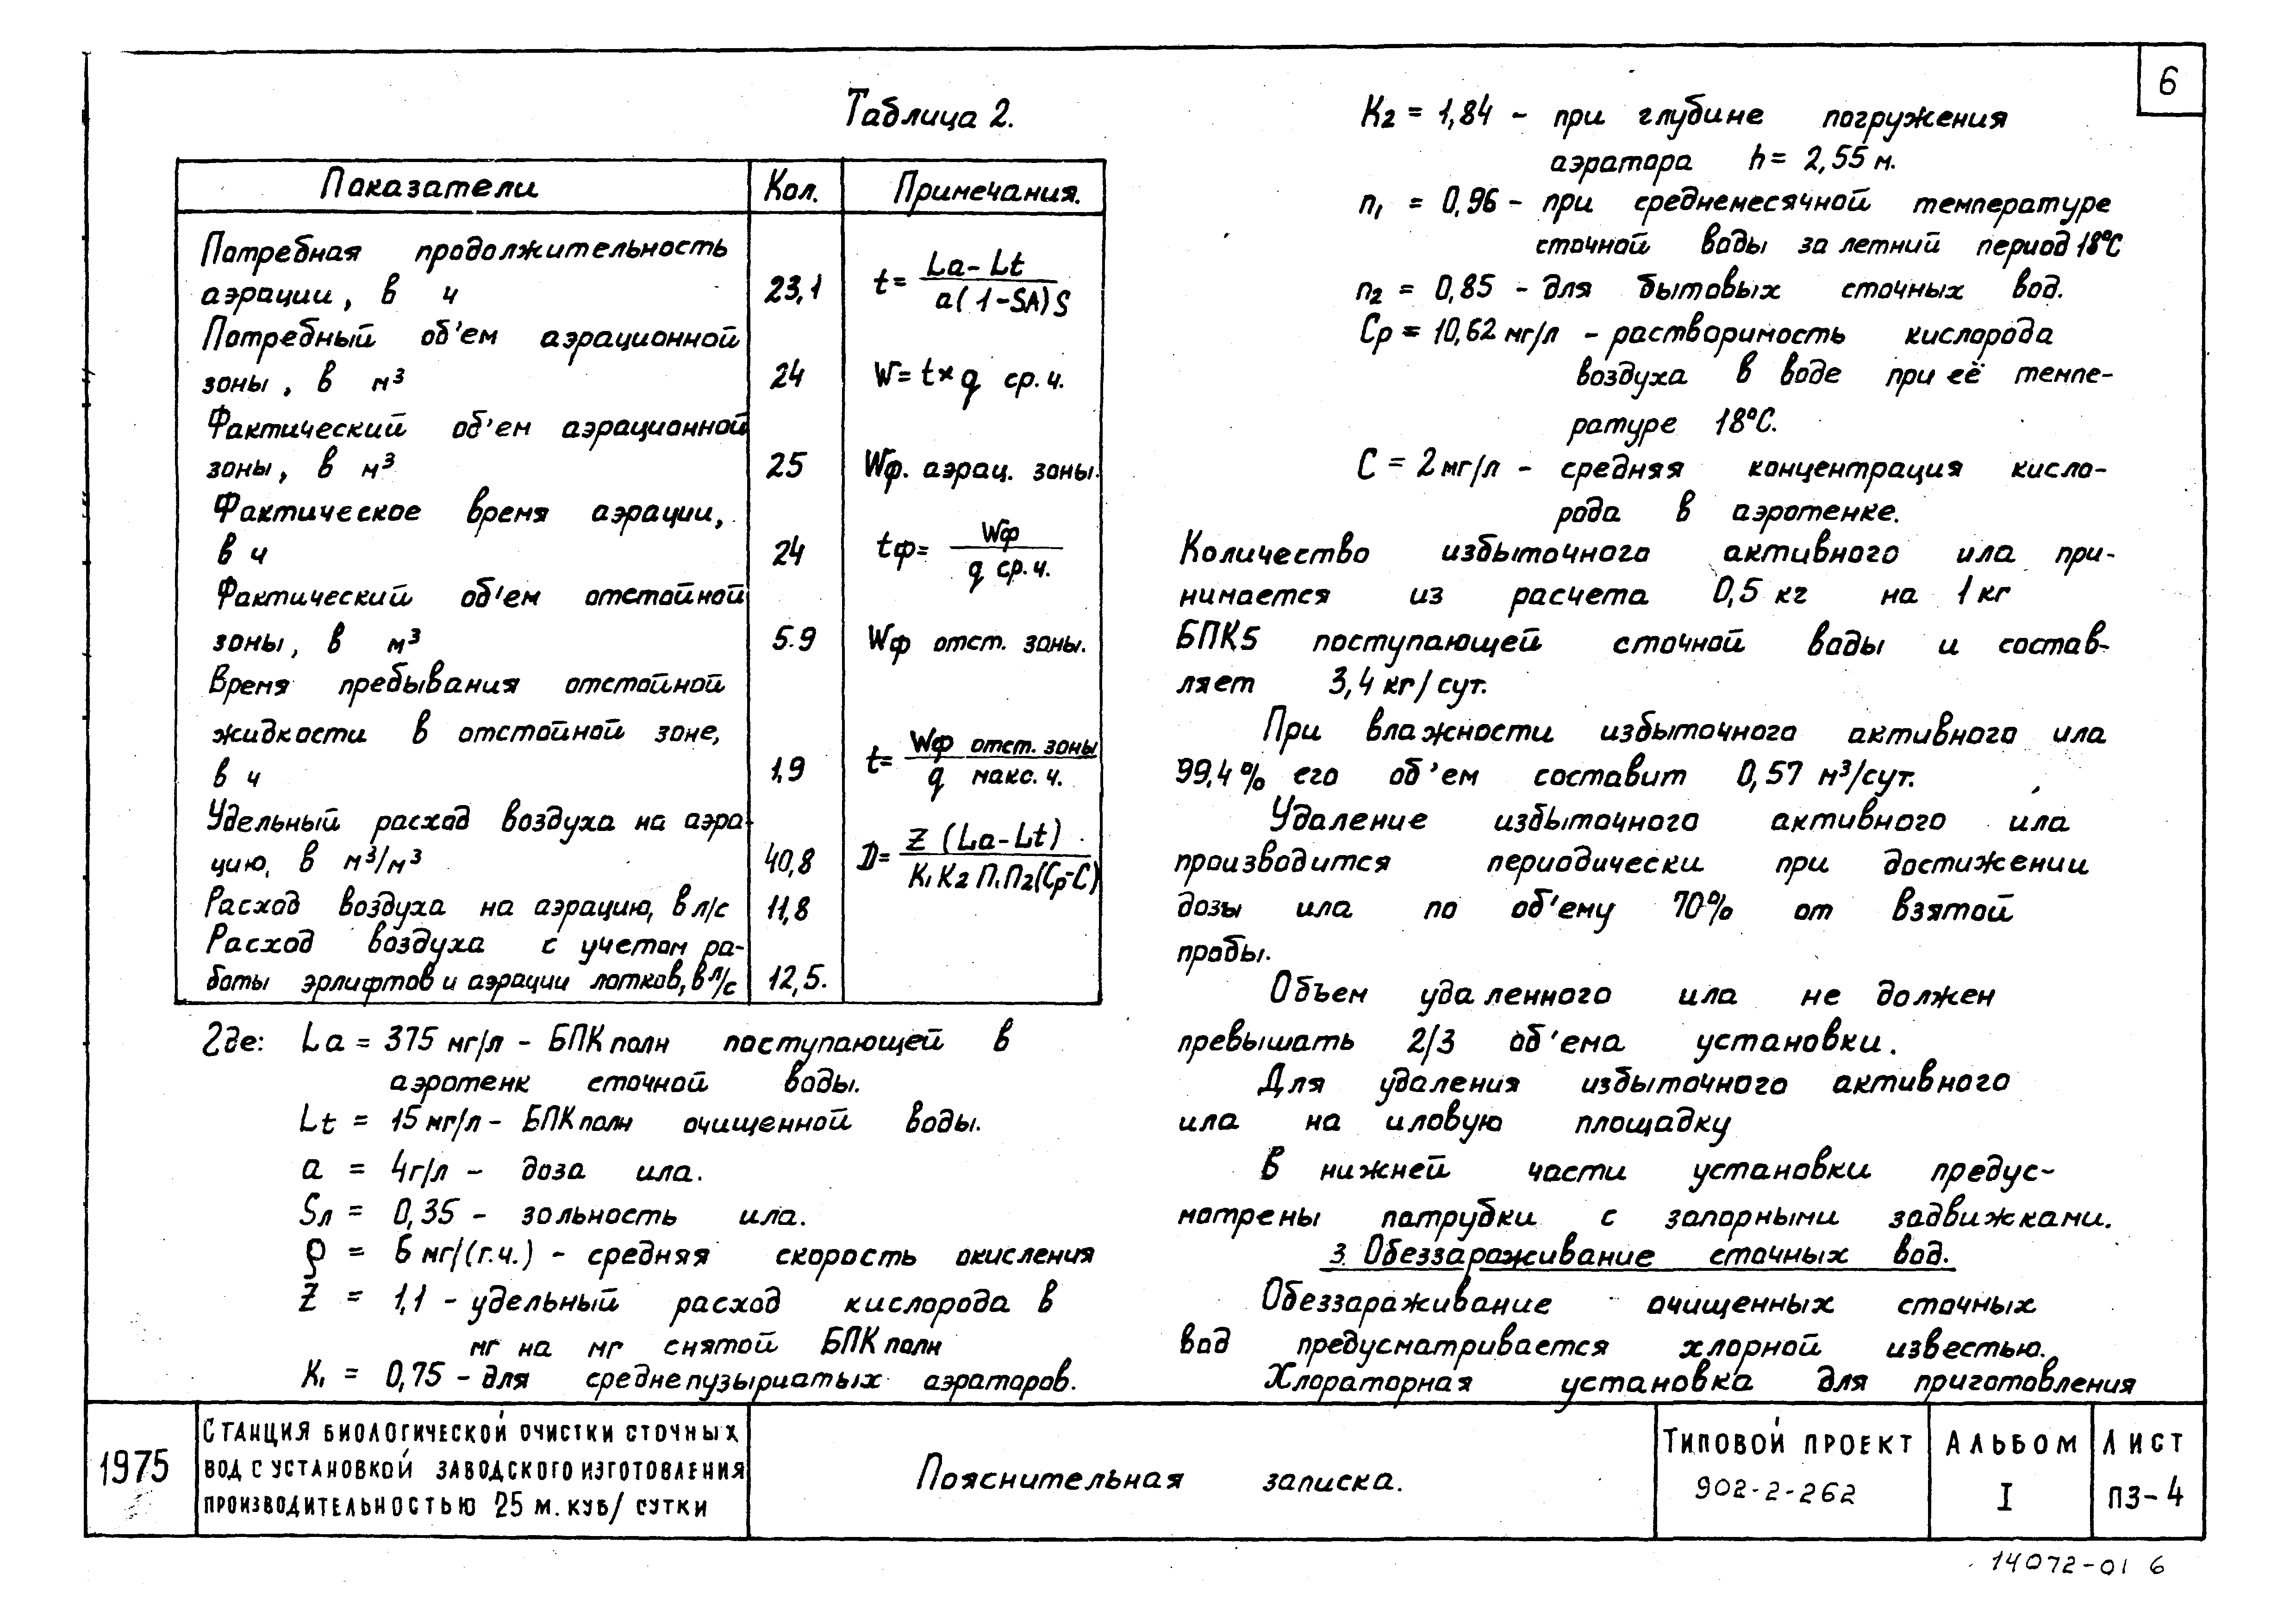 6
Таблица 2.
Показатели Кол. Примечания.
Потребная продолжительность
аэрации, в ч 23,1 t= La-Lt / a(1-SA)S
Потребный об'ем аэрационной
зоны, в м³ 24 W=t×q ср.ч.
Фактический об'ем аэрационной
зоны, в м³ 25 Wф. аэрац. зоны.
Фактическое время аэрации,
в ч 24 tф= Wф / q ср.ч.
Фактический об'ем отстойной
зоны, в м³ 5.9 Wф отст. зоны.
Время пребывания отстойной
жидкости в отстойной зоне,
в ч 1,9 t= Wф отст. зоны / q макс. ч.
Удельный расход воздуха на аэра-
цию, в м³/м³ 40,8 D= Z (La-Lt) / K₁K₂П₁П₂(Ср-С)
Расход воздуха на аэрацию, в л/с 11,8
Расход воздуха с учетом ра-
боты эрлифтов и аэрации лотков, в л/с 12,5.
Где: La = 375 мг/л - БПК полн поступающей в
аэротенк сточной воды.
Lt = 15 мг/л - БПК полн очищенной воды.
a = 4г/л - доза ила.
Sл = 0,35 - зольность ила.
ρ = 6 мг/(г.ч.) - средняя скорость окисления
Z = 1,1 - удельный расход кислорода в
мг на мг снятой БПК полн
K₁ = 0,75 - для среднепузырчатых аэраторов.
K₂ = 1,84 - при глубине погружения
аэратора h = 2,55 м.
n₁ = 0,96 - при среднемесячной температуре
сточной воды за летний период 18°С
n₂ = 0,85 - для бытовых сточных вод.
Ср = 10,62 мг/л - растворимость кислорода
воздуха в воде при её темпе-
ратуре 18°С.
С = 2 мг/л - средняя концентрация кисло-
рода в аэротенке.
Количество избыточного активного ила при-
нимается из расчета 0,5 кг на 1 кг
БПК5 поступающей сточной воды и состав-
ляет 3,4 кг/сут.
При влажности избыточного активного ила
99,4% его об'ем составит 0,57 м³/сут.
Удаление избыточного активного ила
производится периодически при достижении
дозы ила по об'ему 70% от взятой
пробы.
Объем удаленного ила не должен
превышать 2/3 об'ема установки.
Для удаления избыточного активного
ила на иловую площадку
В нижней части установки предус-
мотрены патрубки с запорными задвижками.
3. Обеззараживание сточных вод.
Обеззараживание очищенных сточных
вод предусматривается хлорной известью.
Хлораторная установка для приготовления
1975
СТАНЦИЯ БИОЛОГИЧЕСКОЙ ОЧИСТКИ СТОЧНЫХ
ВОД С УСТАНОВКОЙ ЗАВОДСКОГО ИЗГОТОВЛЕНИЯ
ПРОИЗВОДИТЕЛЬНОСТЬЮ 25 М. КУБ/ СУТКИ
Пояснительная записка.
ТИПОВОЙ ПРОЕКТ
902-2-262
АЛЬБОМ
I
ЛИСТ
ПЗ-4
14072-01 6